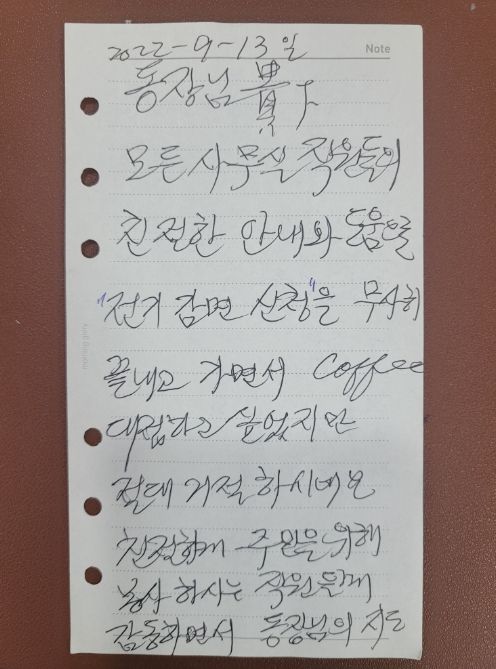 Note
2022-9-13일
동장님 貴下
모든 사무실 직원들의
친절한 안내와 도움으로
"전기 감면 신청"을 무사히
끝내고 가면서 Coffee
대접하고 싶었지만
절대 거절 하시네요
친절하게 주민을 위해
봉사 하시는 직원들께
감동하면서 동장님의 지도
morning glory